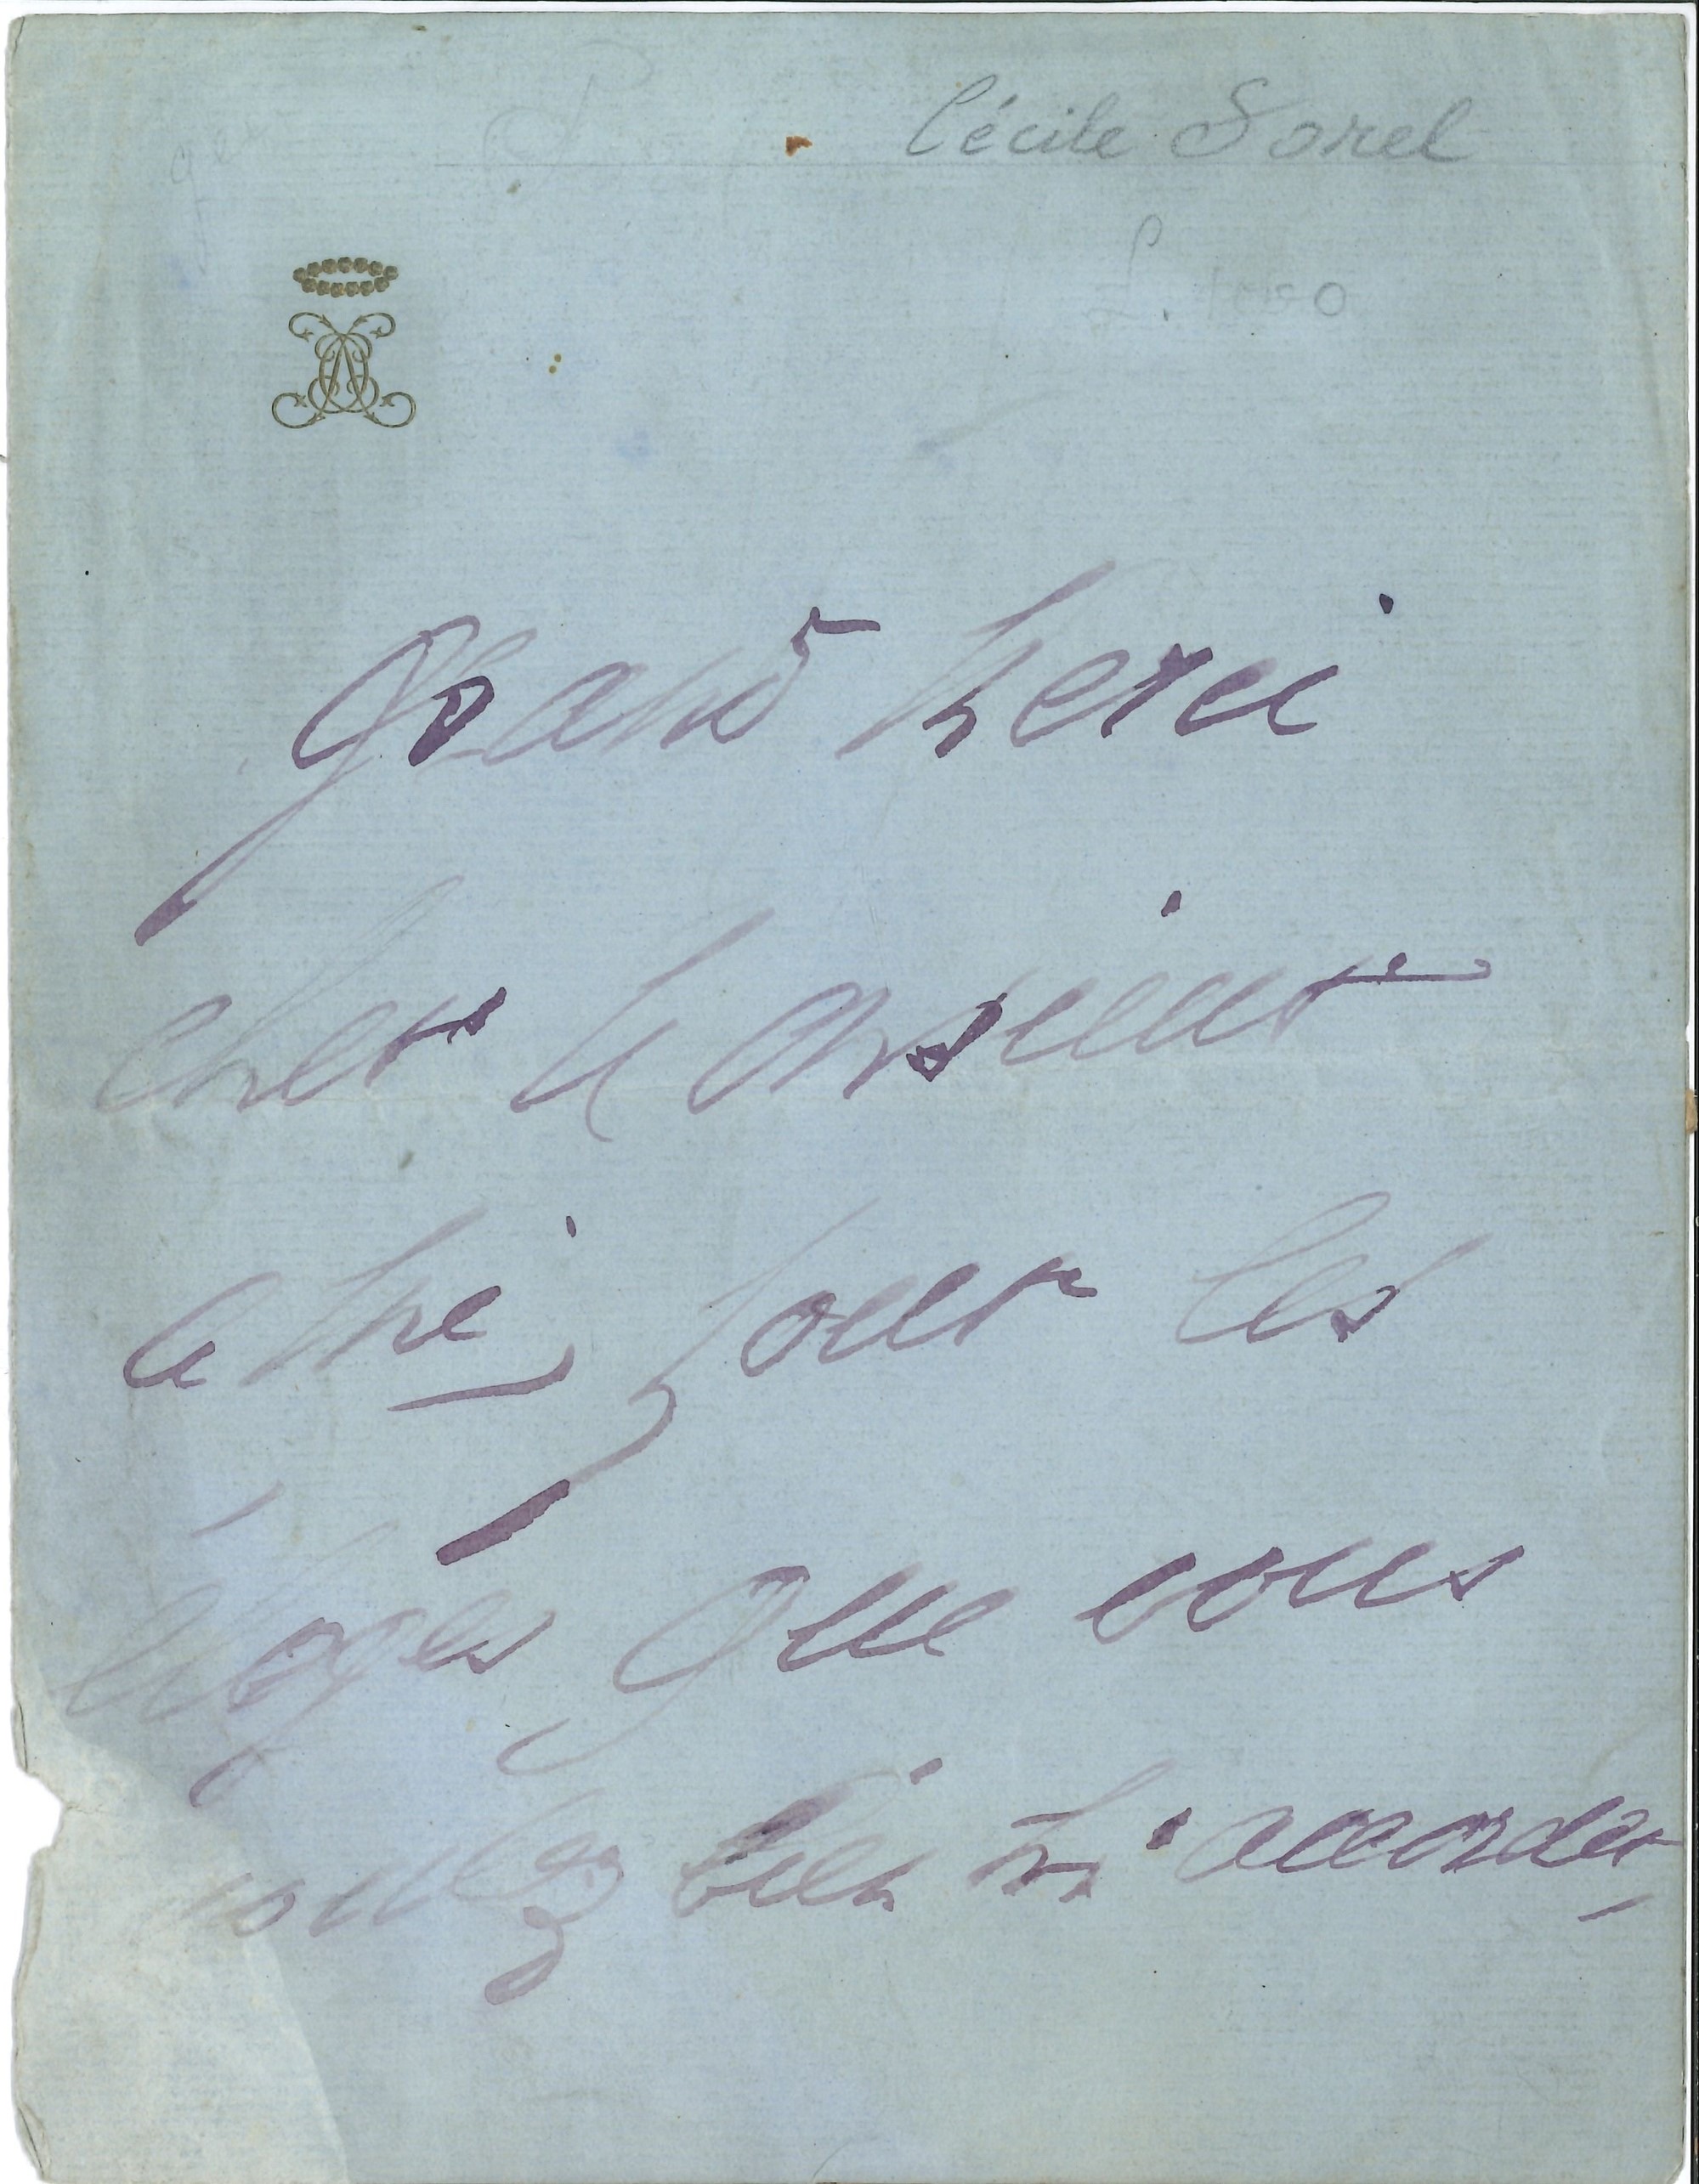 Cécile Sorel
Grand merci
cher Monsieur
ami pour les
éloges que vous
voulez bien m'accorder,